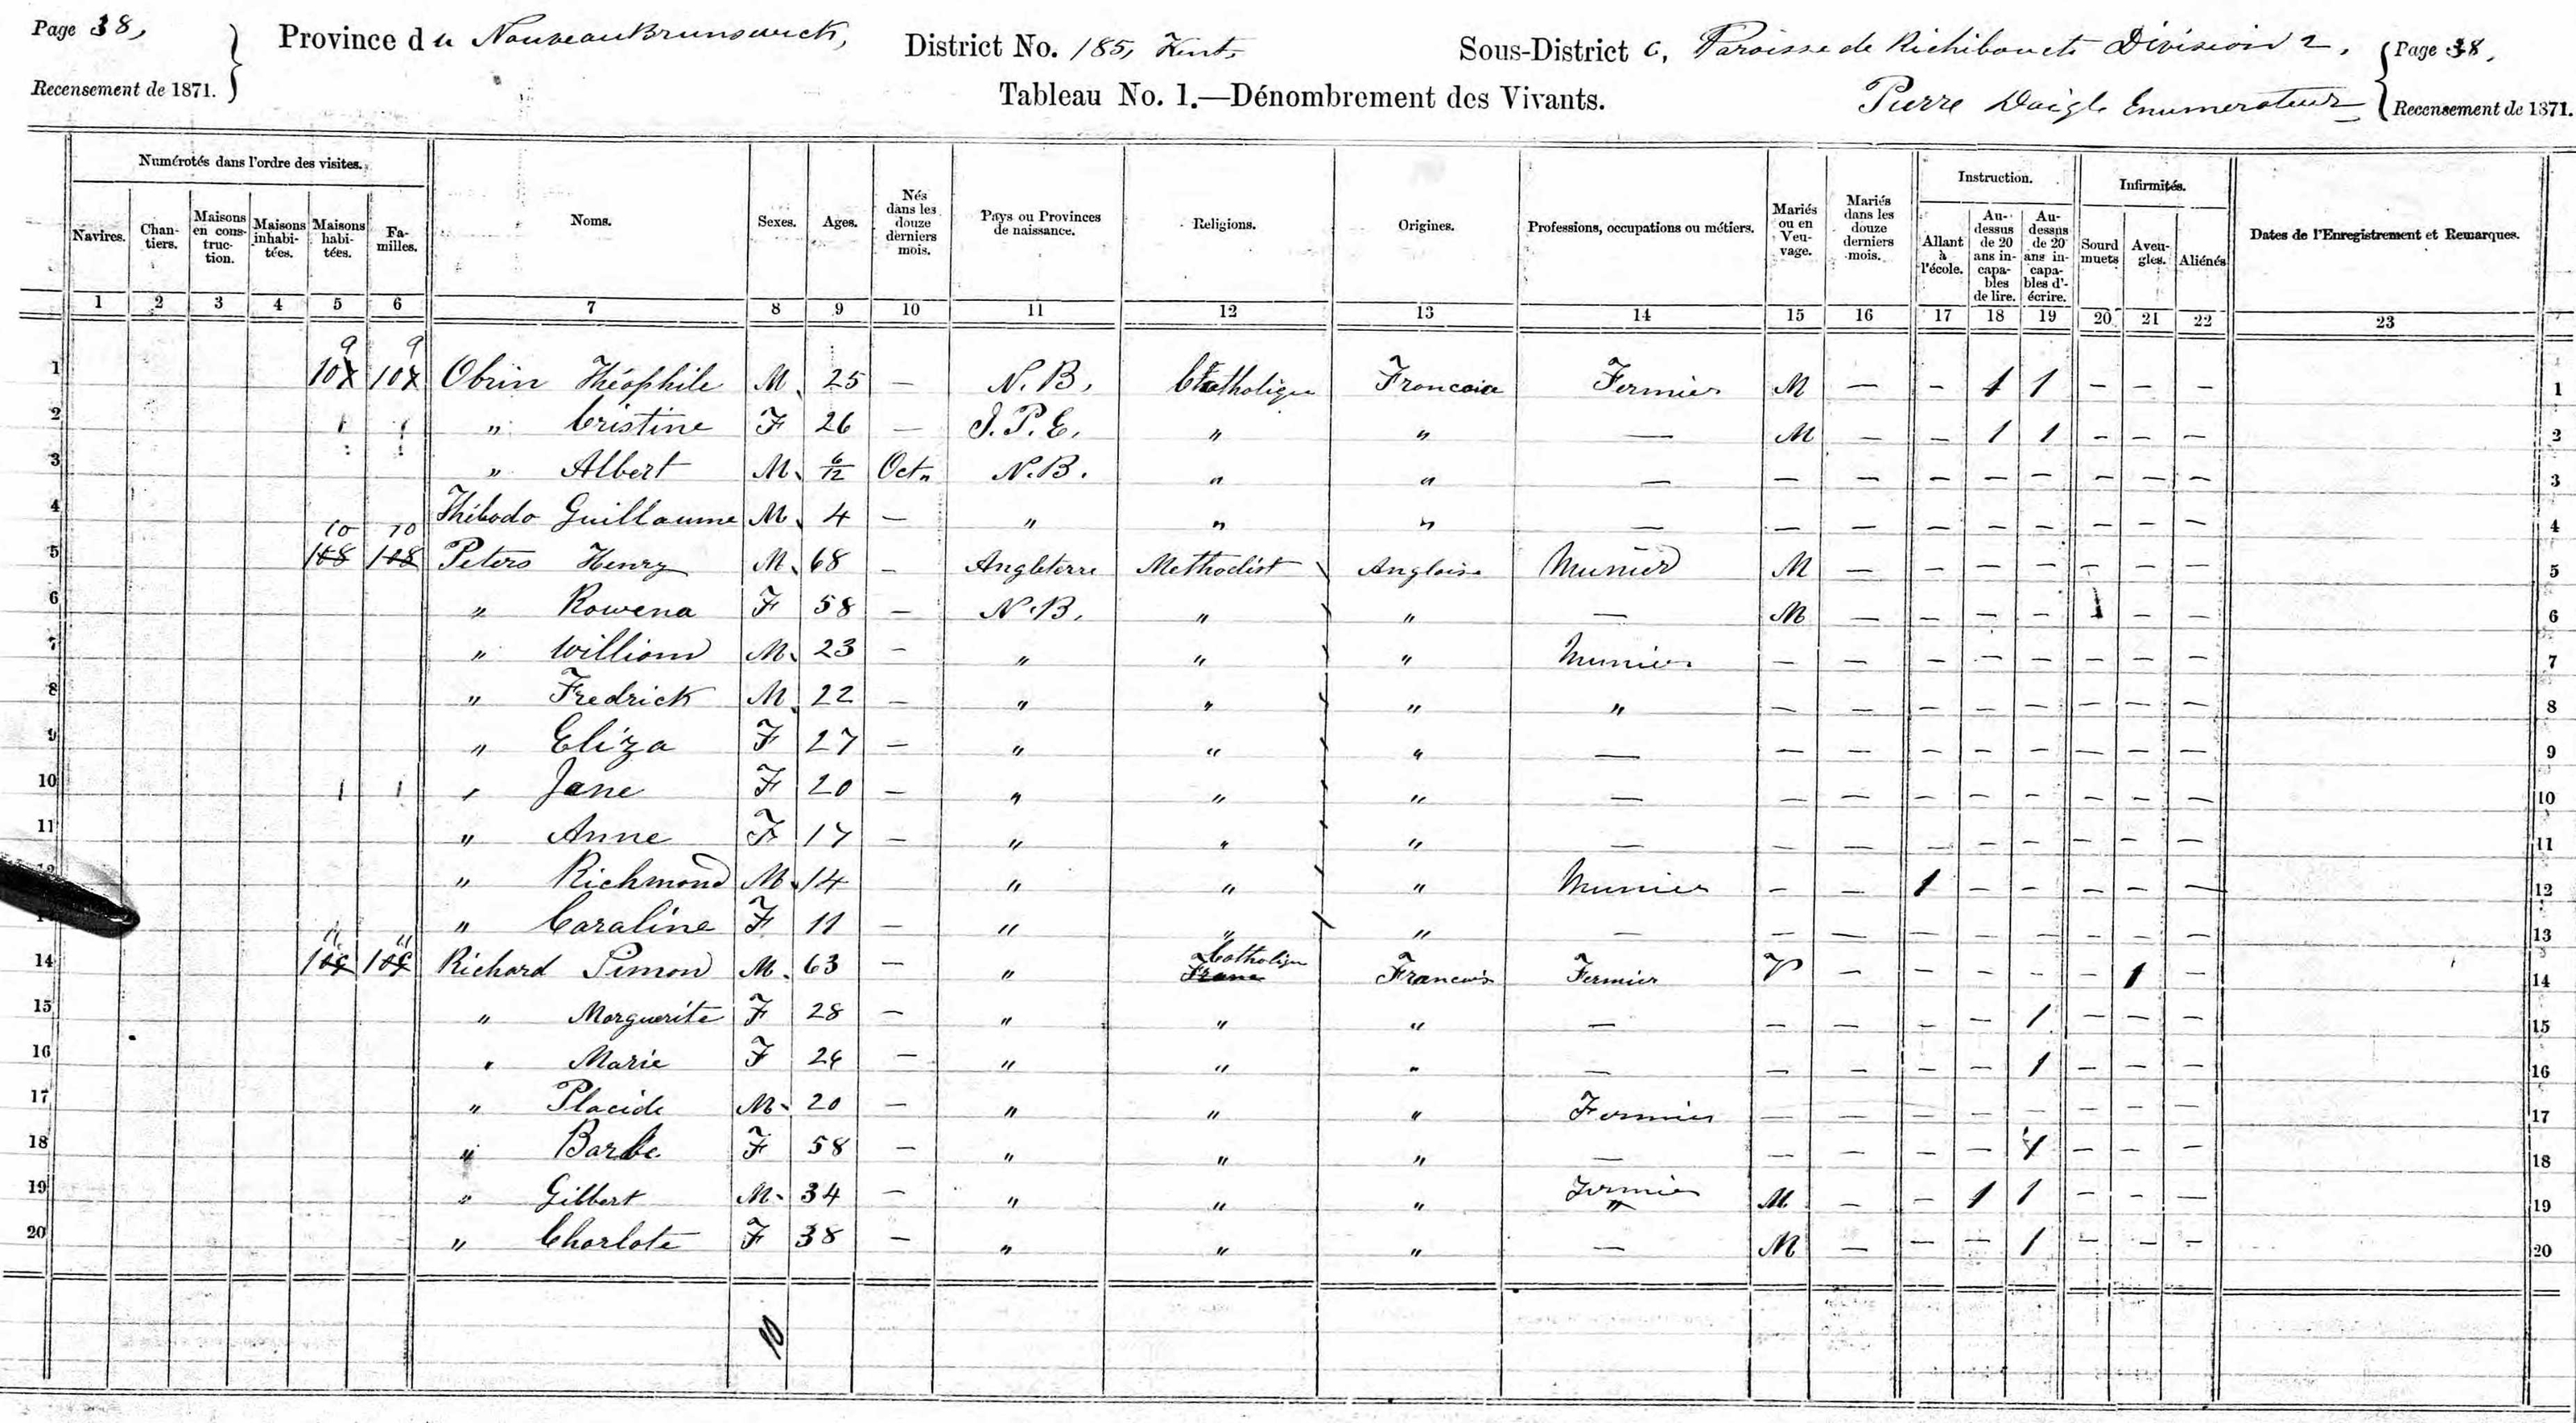 Page 38, Province du Nouveau Brunswick, District No. 185, Kent, Sous-District C, Paroisse de Richibouctо Division 2, Page 38,
Recensement de 1871. Tableau No. 1.—Dénombrement des Vivants. Pierre Daigle Enumerateur Recensement de 1871.
Numérotés dans l'ordre des visites. Instruction. Infirmités.
Navires. Chantiers. Maisons en construction. Maisons inhabitées. Maisons habitées. Familles. Noms. Sexes. Ages. Nés dans les douze derniers mois. Pays ou Provinces de naissance. Religions. Origines. Professions, occupations ou métiers. Mariés ou en Veuvage. Mariés dans les douze derniers mois. Allant à l'école. Au-dessus de 20 ans incapables de lire. Au-dessus de 20 ans incapables d'écrire. Sourd muets Aveugles. Aliénés Dates de l'Enregistrement et Remarques.
1 2 3 4 5 6 7 8 9 10 11 12 13 14 15 16 17 18 19 20 21 22 23
9 9
1 10 10 Obrin Théophile M. 25 — N.B, Catholique Francais Fermier M — - 1 1 - - - 1
2 " Cristine F 26 — I.P.E, " " — M — - 1 1 - - - 2
3 " Albert M. 6/12 Oct. N.B. " " — — — — — — — — — 3
4 Thibodo Guillaume M. 4 — " " " — — — — — — — — — 4
10 10
5 108 108 Peters Henry M. 68 - Angleterre Methodist Anglaise Munier M — — — — — — — 5
6 " Rowena F 58 — N.B. " " — M — — — — 1 — — 6
7 " William M. 23 - " " " Munier — — — — — — — — 7
8 " Fredrick M. 22 — " " " " — — — — — — — — 8
9 " Eliza F 27 — " " " — — — — — — — — — 9
10 1 1 " Jane F 20 — " " " — — — — — — — — — 10
11 " Anne F 17 — " " " — — — — — — — — — 11
" Richmond M. 14 " " " Munier — — 1 — — — — — 12
" Caraline F 11 — " " " — — — — — — — — — 13
11 11 Catholique
14 Richard Simon M. 63 — " Franc Francais Fermier V — — — — — 1 — 14
15 " Marguerite F 28 — " " " — — — — — 1 — — — 15
16 " Marie F 24 — " " " — — — — — 1 — — — 16
17 " Placide M. 20 — " " " Fermier — — — — — — — — 17
18 " Barbe F 58 — " " " — — — — — 1 — — — 18
19 " Gilbert M. 34 — " " " Fermier M — — 1 1 — — — 19
20 " Charlote F 38 — " " " — M — — — 1 — — — 20
10